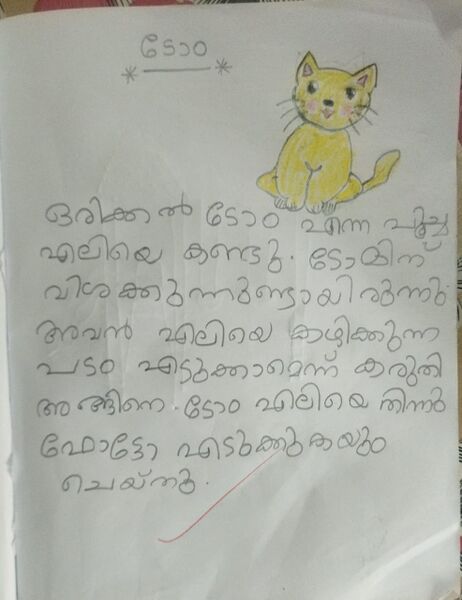 ടോം
ഒരിക്കൽ ടോം എന്ന പൂച്ച
എലിയെ കണ്ടു. ടോമിന്
വിശക്കുന്നുണ്ടായിരുന്നു.
അവൻ എലിയെ കഴിക്കുന്ന
പടം എടുക്കാമെന്ന് കരുതി
അങ്ങിനെ ടോം എലിയെ തിന്നു
ഫോട്ടോ എടുക്കുകയും
ചെയ്തു.